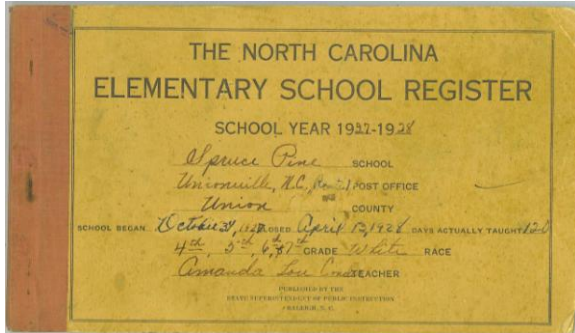 THE NORTH CAROLINA
ELEMENTARY SCHOOL REGISTER
SCHOOL YEAR 1927-1928
Spruce Pine SCHOOL
Unionville, N.C., POST OFFICE
Union COUNTY
SCHOOL BEGAN October 31, 1927 CLOSED April 13, 1928 DAYS ACTUALLY TAUGHT 120
4th, 5th, 6th, 7th GRADE White RACE
Amanda Lou TEACHER
PUBLISHED BY THE
STATE SUPERINTENDENT OF PUBLIC INSTRUCTION
RALEIGH, N. C.